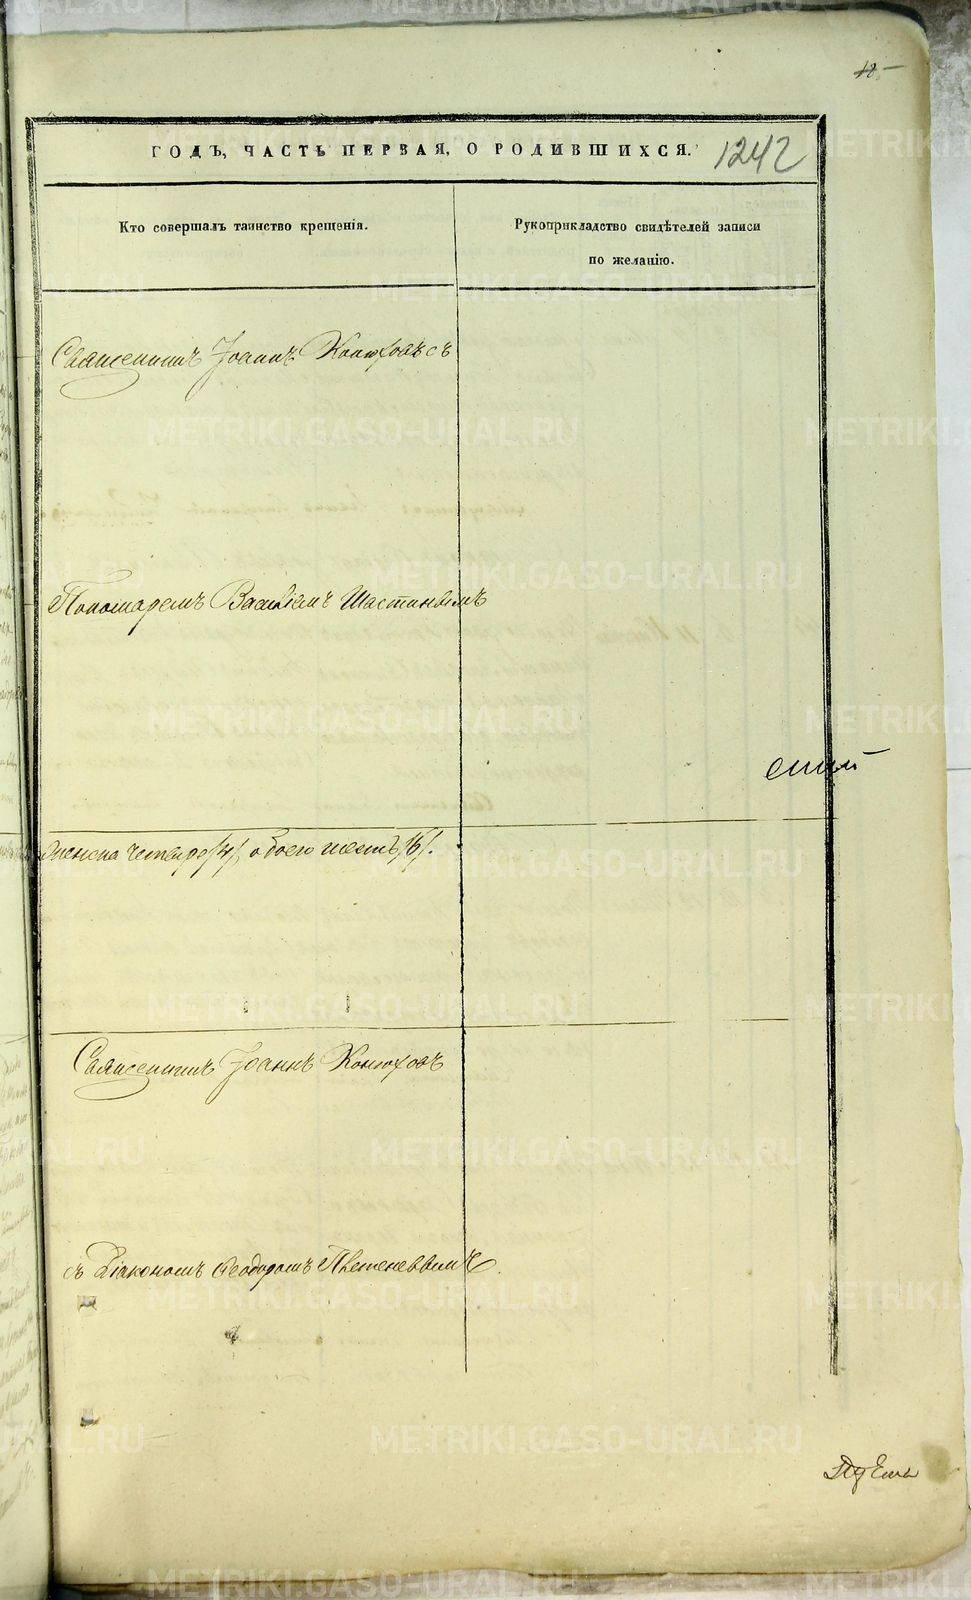 18
ГОДЪ, ЧАСТЬ ПЕРВАЯ, О РОДИВШИХСЯ. 1242
Кто совершалъ таинство крещенія.
Рукоприкладство свидѣтелей записи
по желанію.
Священникъ Іоаннъ Конюховъ съ
Пономаремъ Василіемъ Шастинымъ
женска четыре /4/, обоего шесть /6/.
Священникъ Іоаннъ Конюховъ
съ Діакономъ Ѳеодоромъ
METRIKI.GASO-URAL.RU